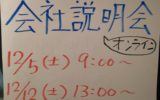 会社説明会
オンライン
12/5(土) 9:00〜
12/12(土) 13:00〜